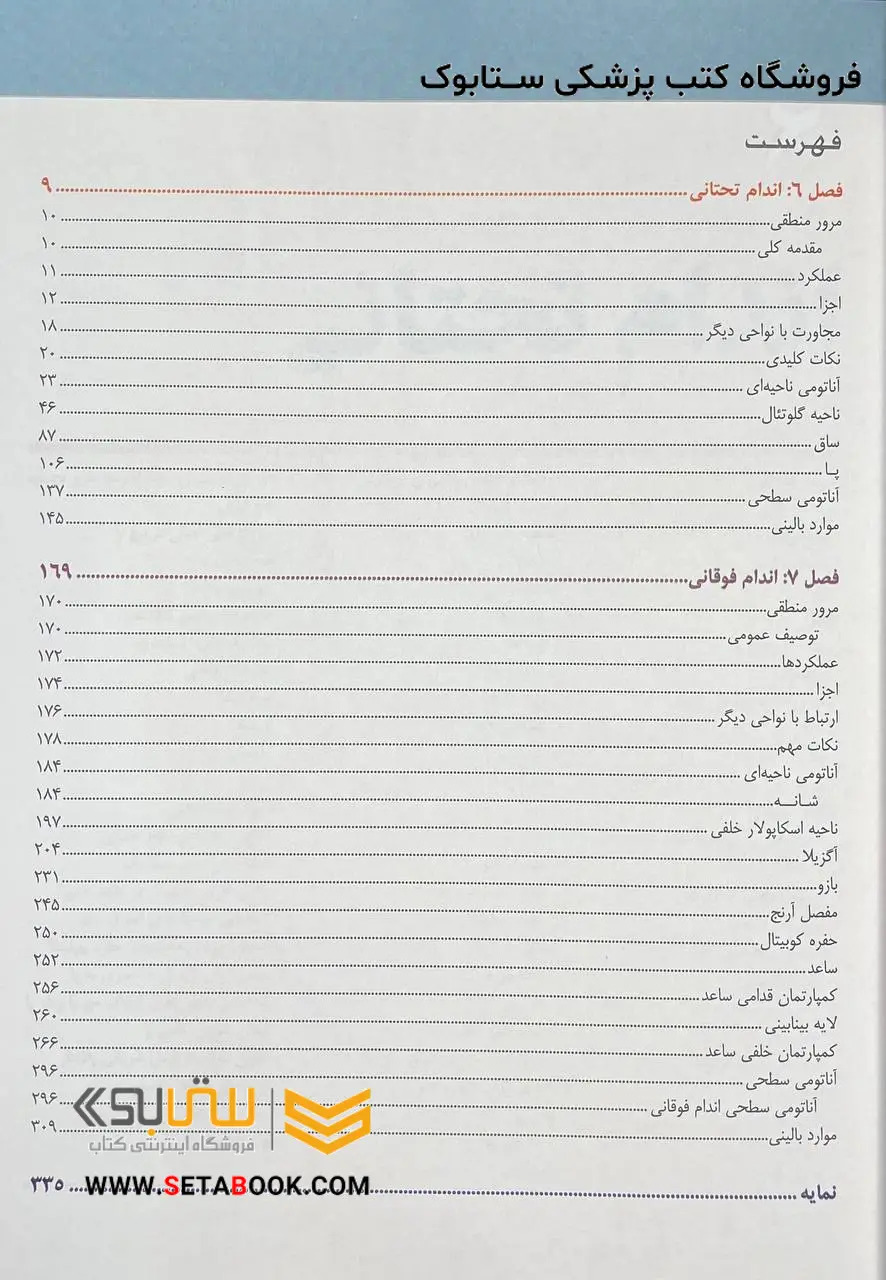 فروشگاه کتب پزشکی ستابوک
فهرست
فصل ٦: اندام تحتانی ........ ۹
مرور منطقی ........ ۱۰
مقدمه کلی ........ ۱۰
عملکرد ........ ۱۱
اجزا ........ ۱۲
مجاورت با نواحی دیگر ........ ۱۸
نکات کلیدی ........ ۲۰
آناتومی ناحیه‌ای ........ ۲۳
ناحیه گلوتئال ........ ۴۶
ساق ........ ۸۷
پا ........ ۱۰۶
آناتومی سطحی ........ ۱۳۷
موارد بالینی ........ ۱۴۵
فصل ۷: اندام فوقانی ........ ۱٦۹
مرور منطقی ........ ۱۷۰
توصیف عمومی ........ ۱۷۰
عملکردها ........ ۱۷۲
اجزا ........ ۱۷۴
ارتباط با نواحی دیگر ........ ۱۷۶
نکات مهم ........ ۱۷۸
آناتومی ناحیه‌ای ........ ۱۸۴
شانه ........ ۱۸۴
ناحیه اسکاپولار خلفی ........ ۱۹۷
آگزیلا ........ ۲۰۴
بازو ........ ۲۳۱
مفصل آرنج ........ ۲۴۵
حفره کوبیتال ........ ۲۵۰
ساعد ........ ۲۵۲
کمپارتمان قدامی ساعد ........ ۲۵۶
لایه بینابینی ........ ۲۶۰
کمپارتمان خلفی ساعد ........ ۲۶۶
آناتومی سطحی ........ ۲۹۶
آناتومی سطحی اندام فوقانی ........ ۲۹۶
موارد بالینی ........ ۳۰۹
ستابوک
فروشگاه اینترنتی کتاب
نمایه ........ ۳۳۵
WWW.SETABOOK.COM